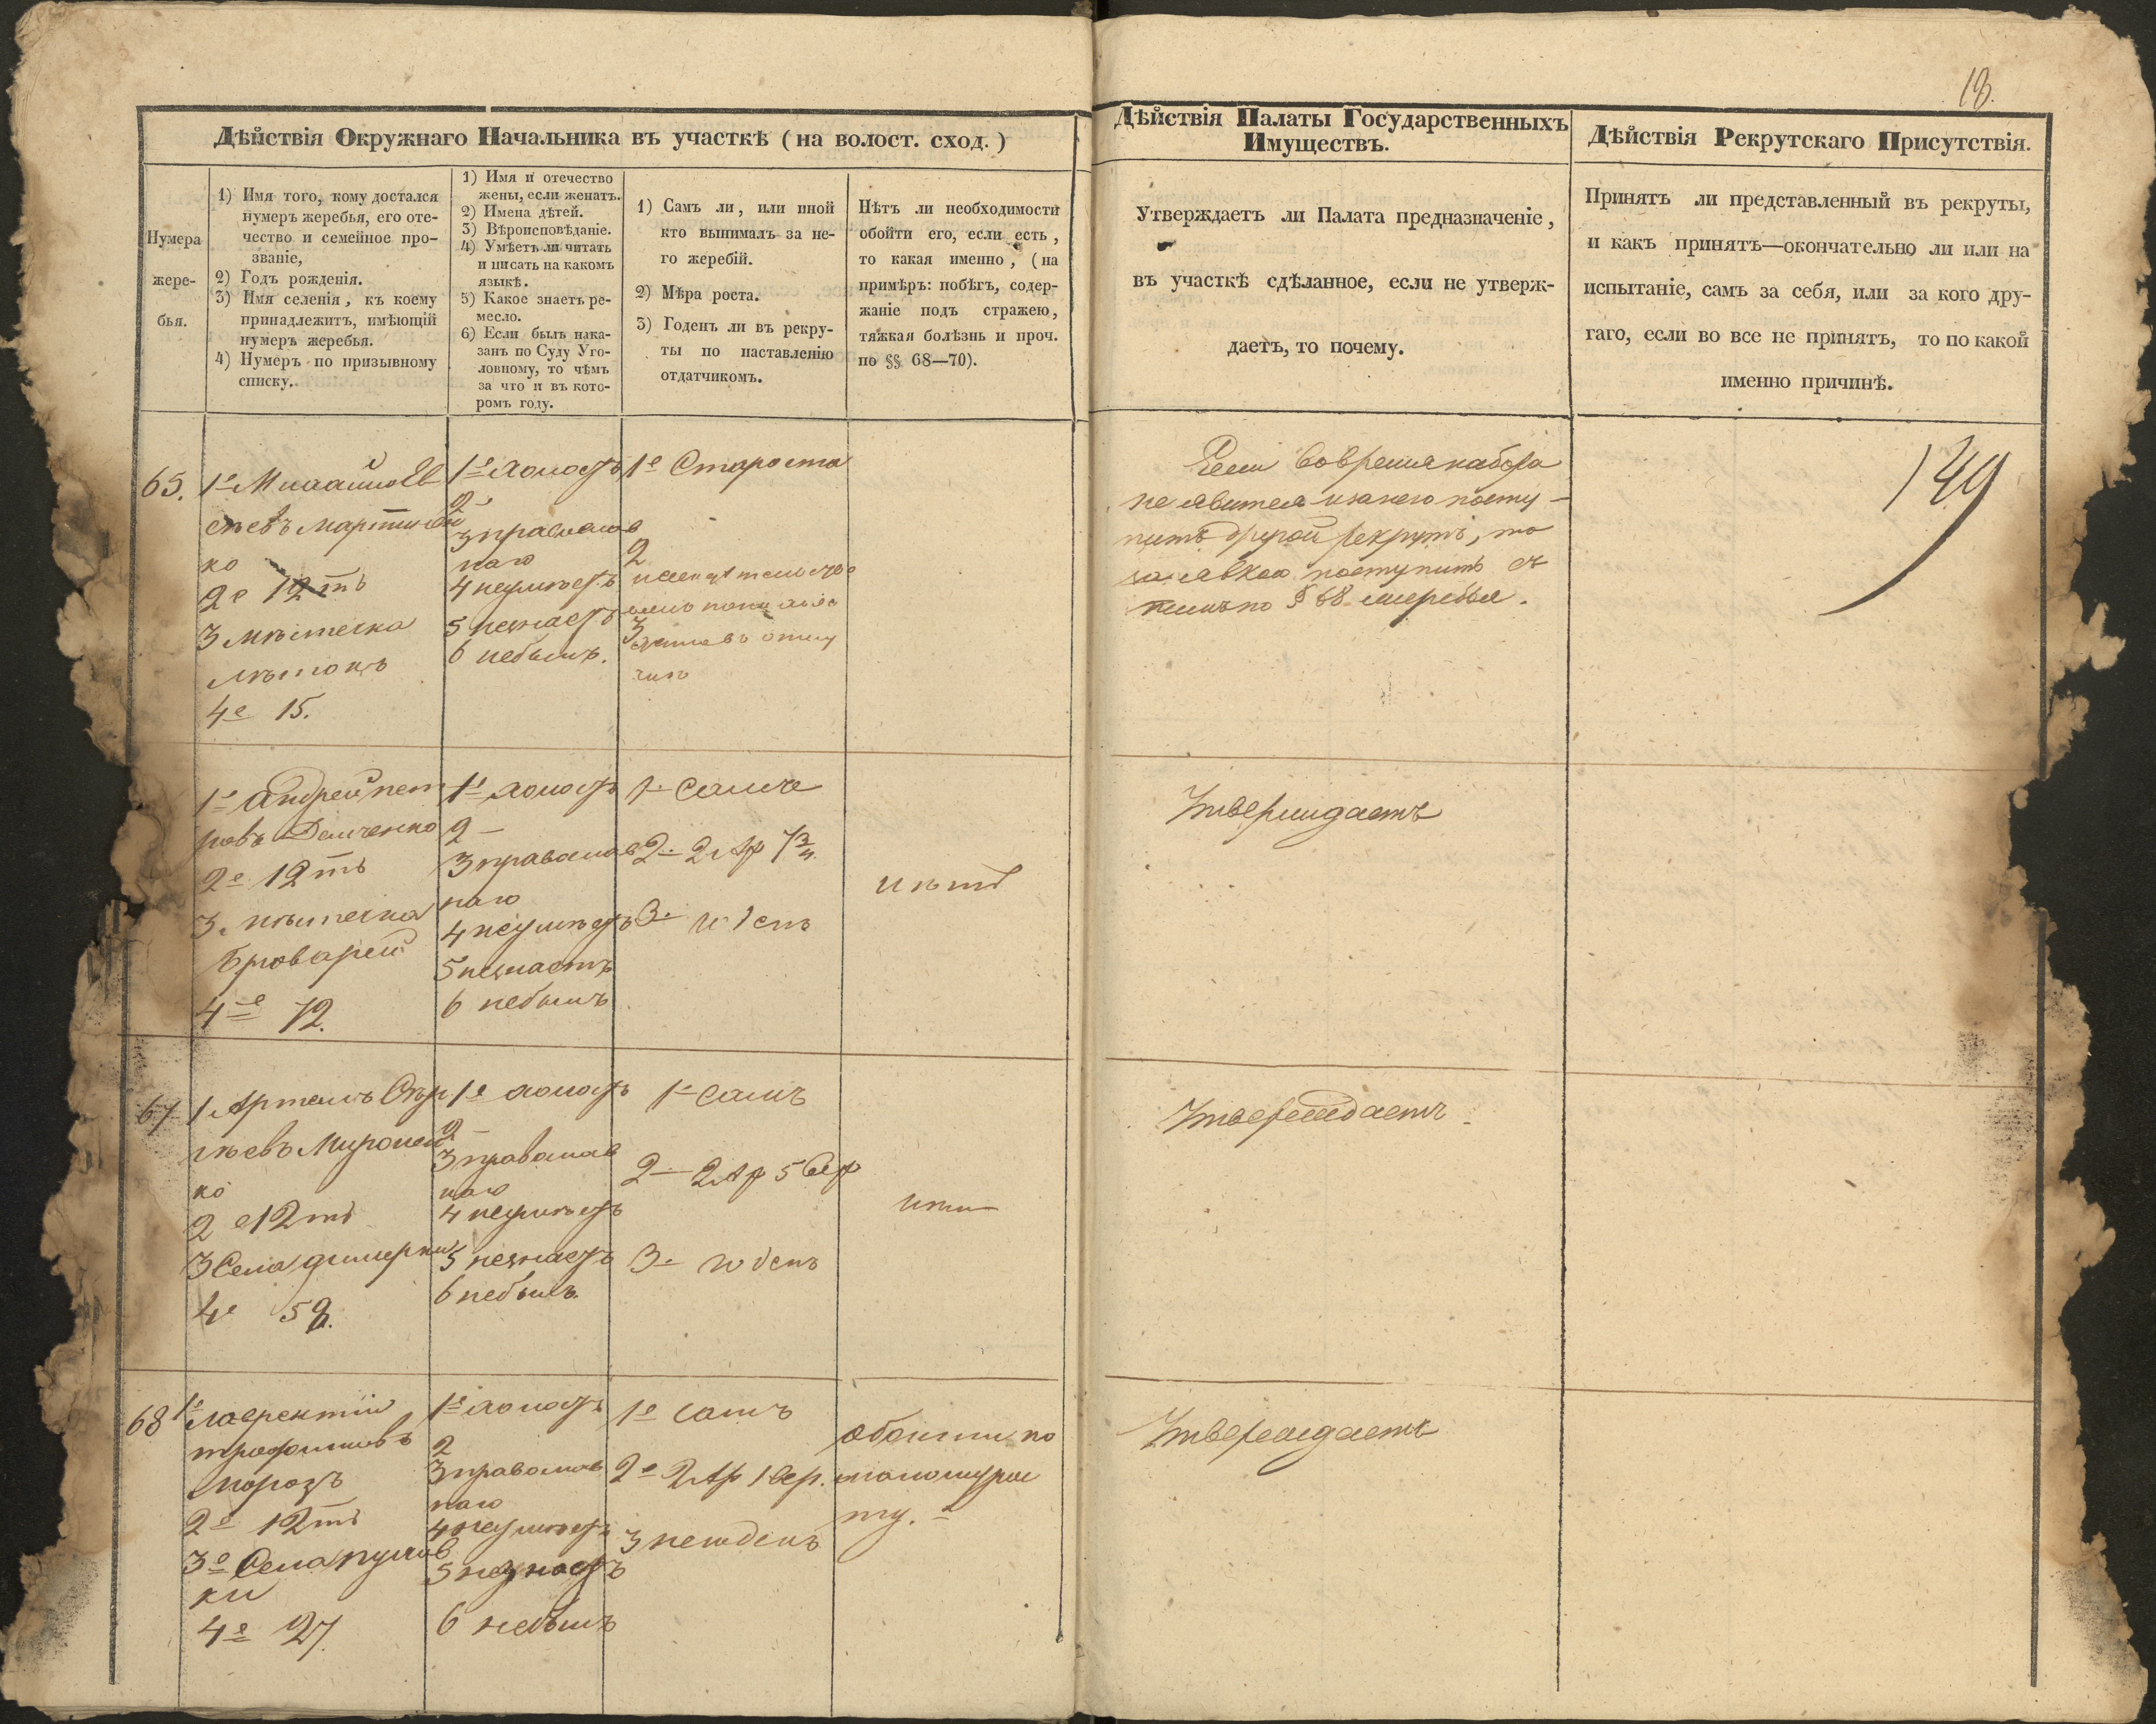 18.
Дѣйствія Окружнаго Начальника въ участкѣ (на волост. сход.)
Нумера
жере-
бья.
1) Имя того, кому достался
нумеръ жеребья, его оте-
чество и семейное про-
званіе,
2) Годъ рожденія.
3) Имя селенія, къ коему
принадлежитъ, имѣющій
нумеръ жеребья.
4) Нумеръ по призывному
списку.
1) Имя и отечество
жены, если женатъ.
2) Имена дѣтей.
3) Вѣроисповѣданіе.
4) Умѣетъ ли читать
и писать на какомъ
языкѣ.
5) Какое знаетъ ре-
месло.
6) Если былъ нака-
занъ по Суду Уго-
ловному, то чѣмъ
за что и въ кото-
ромъ году.
1) Самъ ли, или иной
кто вынималъ за не-
го жеребій.
2) Мѣра роста.
3) Годенъ ли въ рекру-
ты по наставленію
отдатчикомъ.
Нѣтъ ли необходимости
обойти его, если есть,
то какая именно, (на
примѣръ: побѣгъ, содер-
жаніе подъ стражею,
тяжкая болѣзнь и проч.
по §§ 68—70).
Дѣйствія Палаты Государственныхъ
Имуществъ.
Утверждаетъ ли Палата предназначеніе,
въ участкѣ сдѣланное, если не утверж-
даетъ, то почему.
Дѣйствія Рекрутскаго Присутствія.
Принятъ ли представленный въ рекруты,
и какъ принятъ—окончательно ли или на
испытаніе, самъ за себя, или за кого дру-
гаго, если во все не принятъ, то по какой
именно причинѣ.
65.
ко
2е 12тъ
3 мѣстечка
4е 15.
1е холостъ
2
3 православ
наго
4 неумѣетъ
5 незнаетъ
6 небылъ.
1е Староста
2
3
Если вовремя набора
не явится и за него посту-
питъ другой рекрутъ, то
поступить съ
по § 68
149
1е Андрей Пет
ровъ Демченко
2е 12тъ
3 мѣстечка
Броварей
4е 72.
1е холостъ
2 —
3 православ
наго
4 неумѣетъ
5 незнаетъ
6 небылъ
1е Самъ
2е 2 Ар 7 3/4
3е годенъ
нѣтъ
Утверждаетъ
67
1 Артемъ Сер
гѣевъ Миронен
ко
2е 12тъ
3 Села Димерки
4е
1е холостъ
2 —
3 православ
наго
4 неумѣетъ
5 незнаетъ
6 небылъ
1е Самъ
2 — 2 Ар 5 Вер
3е годенъ
Утверждаетъ
68
1е Лаврентій
Трофимовъ
Морозъ
2е 12тъ
3е Села Пухов
ки
4е 27
1е холостъ
2
3 православ
наго
4 неумѣетъ
5 незнаетъ
6 небылъ
1е самъ
2е 2 Ар 1 вер.
3 негоденъ
обойти по
малому рос
ту. —
Утверждаетъ